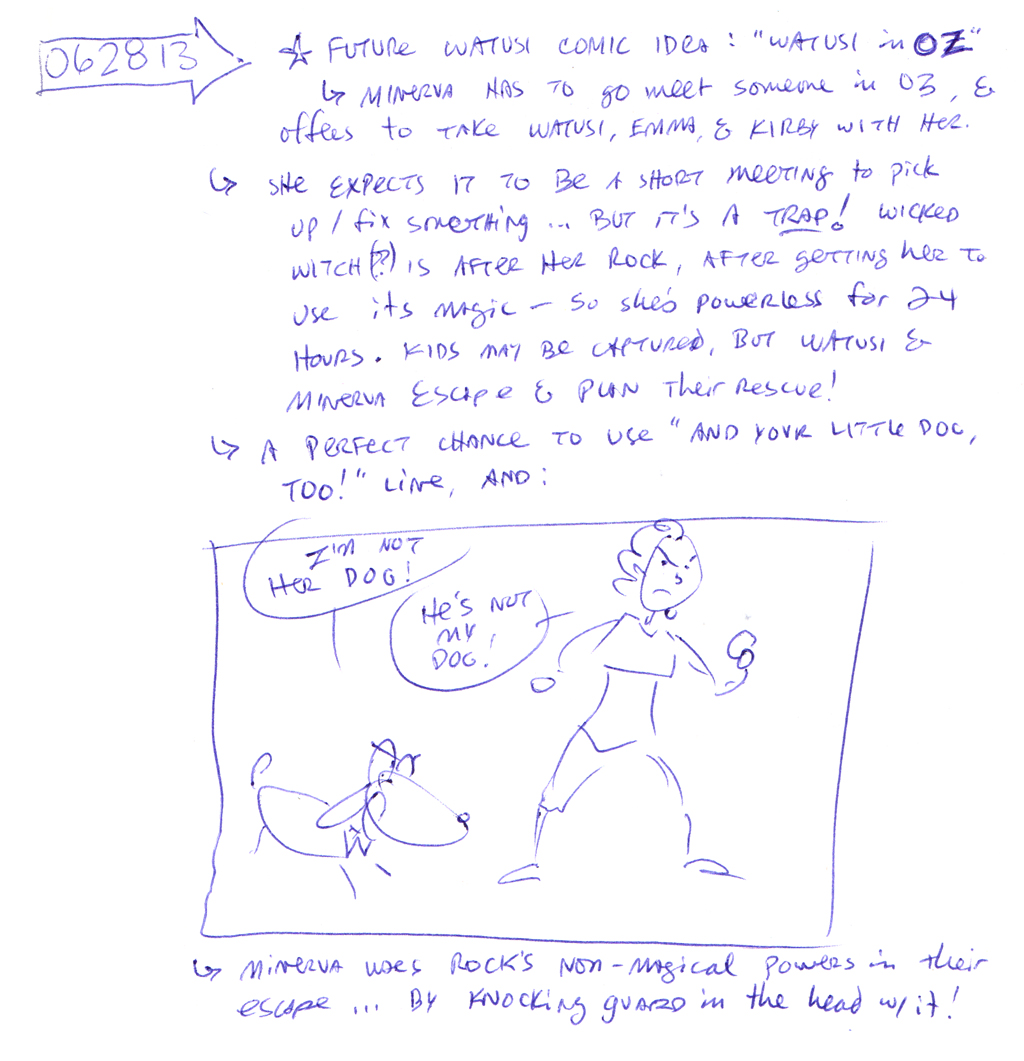 062813
☆ FUTURE WATUSI COMIC IDEA: "WATUSI in OZ"
↳ MINERVA HAS TO go meet someone in OZ, &
offers to TAKE WATUSI, EMMA, & KIRBY WITH HER.
↳ SHE EXPECTS IT TO BE A SHORT MEETING to pick
UP / fix SOMETHING ... BUT IT'S A TRAP! WICKED
WITCH (?) IS AFTER HER ROCK, AFTER getting her to
use its magic — So she's powerless for 24
HOURS. KIDS MAY BE CAPTURED, BUT WATUSI &
MINERVA ESCAPE & PLAN Their Rescue!
↳ A PERFECT CHANCE TO USE "AND YOUR LITTLE DOG,
TOO!" LINE, AND:
I'M NOT
HER DOG!
He's NOT
MY
DOG!
W
↳ MINERVA USES ROCK'S NON-MAGICAL POWERS in their
escape ... BY KNOCKING GUARD in the head w/ it!